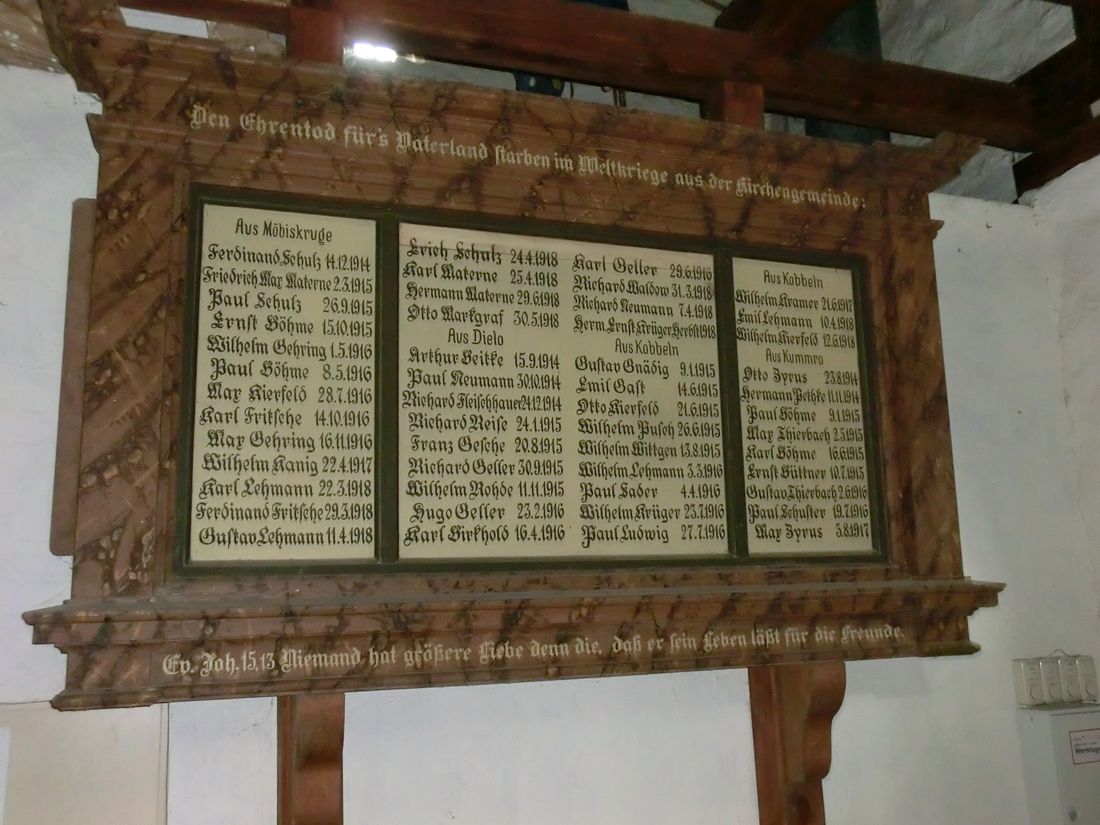 Den Ehrentod für's Vaterland starben im Weltkriege aus der Kirchengemeinde:
Aus Möbiskruge
Ferdinand Schulz 14.12.1914
Friedrich Max Materne 2.3.1915
Paul Schulz 26.9.1915
Ernst Böhme 15.10.1915
Wilhelm Gehring 1.5.1916
Paul Böhme 8.5.1916
Max Kierfeld 28.7.1916
Karl Fritsche 14.10.1916
Max Gehring 16.11.1916
Wilhelm Hanig 22.4.1917
Karl Lehmann 22.3.1918
Ferdinand Fritsche 29.3.1918
Gustav Lehmann 11.4.1918
Erich Schulz 24.4.1918
Karl Materne 25.4.1918
Hermann Materne 29.6.1918
Otto Markgraf 30.5.1918
Aus Dielo
Arthur Beitke 15.9.1914
Paul Neumann 30.10.1914
Richard Fleischhauer 24.12.1914
Richard Reise 24.1.1915
Franz Gesche 20.8.1915
Richard Geller 30.9.1915
Wilhelm Rohde 11.11.1915
Hugo Geller 23.2.1916
Karl Birkhold 16.4.1916
Karl Geller 29.6.1918
Richard Waldow 31.3.1918
Richard Neumann 7.4.1918
Herm. Ernst Krüger Herbst 1918
Aus Kobbeln
Gustav Gnädig 9.1.1915
Emil Gast 14.6.1915
Otto Kierfeld 21.6.1915
Wilhelm Pusch 26.6.1915
Wilhelm Wittgen 13.8.1915
Wilhelm Lehmann 3.3.1916
Paul Sader 4.4.1916
Wilhelm Krüger 23.7.1916
Paul Ludwig 27.7.1916
Aus Kobbeln
Wilhelm Kramer 21.6.1917
Emil Lehmann 10.4.1918
Wilhelm Kierfeld 12.6.1918
Aus Kummro
Otto Zyrus 23.8.1914
Hermann Pethke 11.11.1914
Paul Böhme 9.1.1915
Max Thierbach 2.5.1915
Karl Böhme 16.6.1915
Ernst Büttner 10.7.1915
Gustav Thierbach 2.6.1916
Paul Schuster 19.7.1916
Max Zyrus 3.8.1917
Ev. Joh. 15,13 Niemand hat größere Liebe denn die, daß er sein Leben läßt für die Freunde.